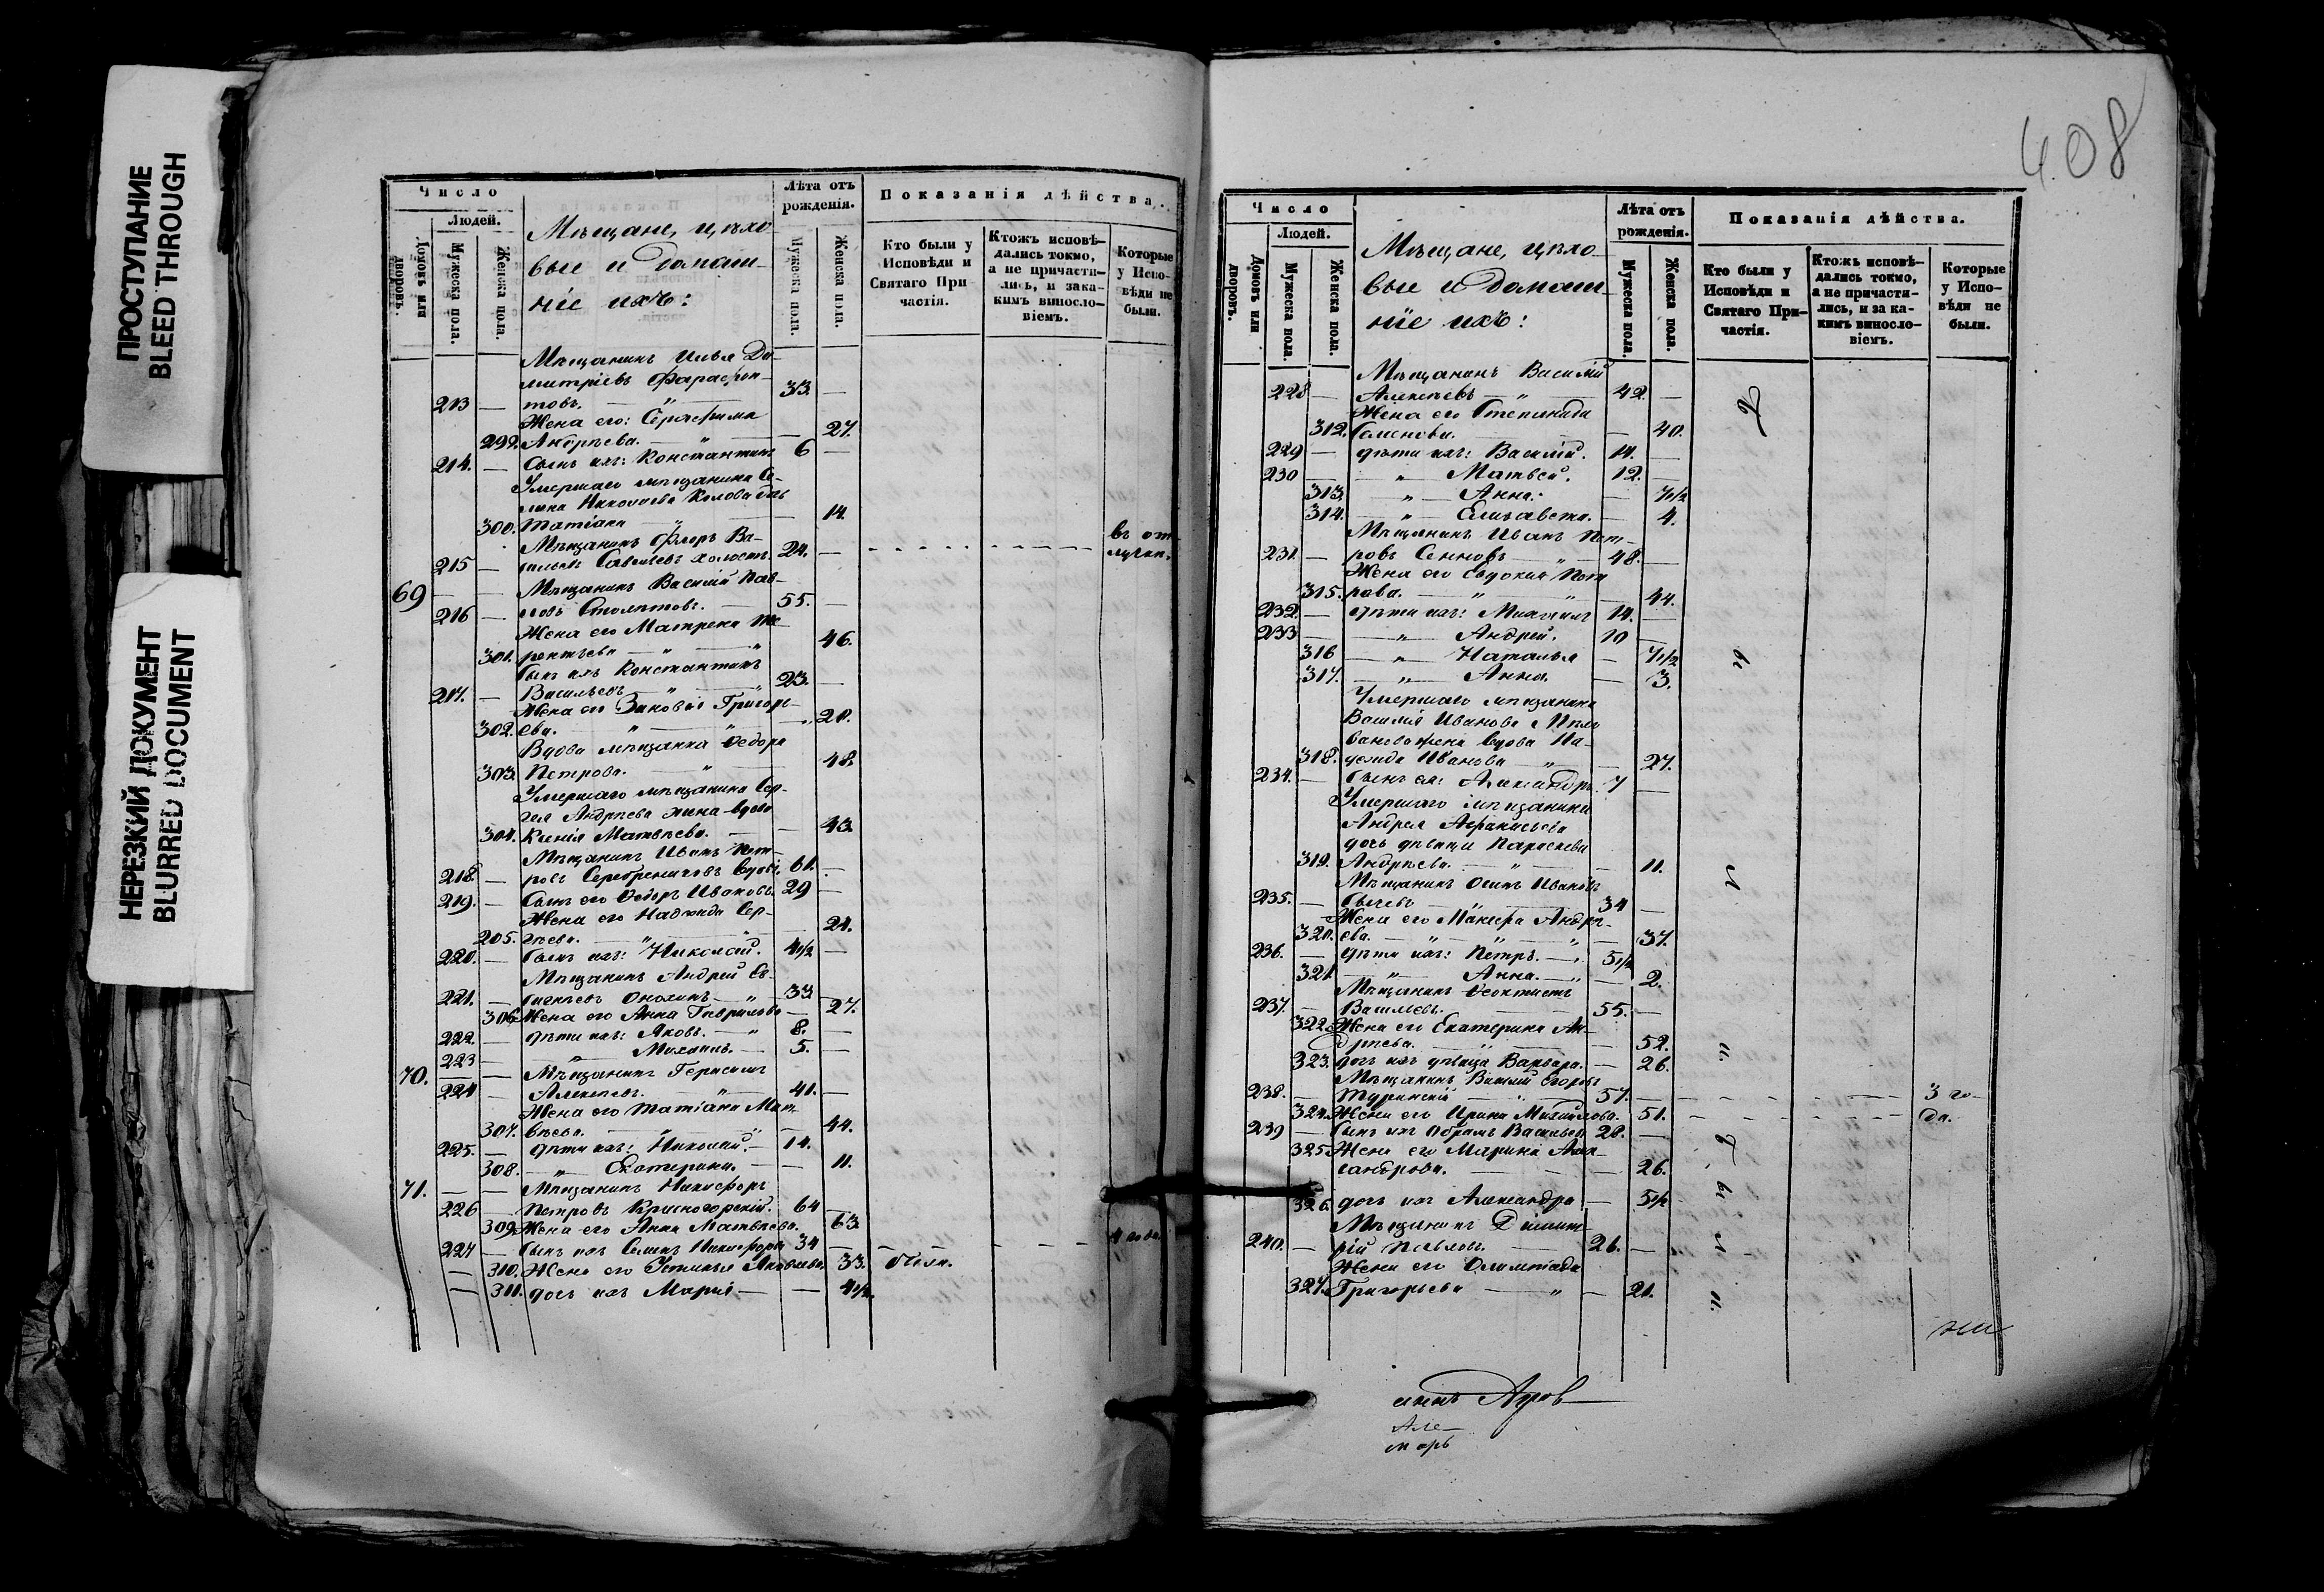 ПРОСТУПАНИЕ
BLEED THROUGH
НЕРЕЗКИЙ ДОКУМЕНТ
BLURRED DOCUMENT
408
Число
Людей.
Домовъ или дворовъ.
Мужеска пола.
Женска пола.
Мѣщане, цѣхо-
вые и домаш-
ніе ихъ:
Лѣта отъ
рожденія.
Мужеска пола.
Женска пола.
Показанія дѣйства.
Кто были у
Исповѣди и
Святаго При-
частія.
Ктожъ исповѣ-
дались токмо,
а не причасти-
лись, и зака-
кимъ винословіемъ.
Которые
у Испо-
вѣди не
были.
Мѣщанинъ Илья Ди-
митріевъ
213 — товъ. — 33. —
Жена его: Серафима
299. Андрѣева. — 27.
214. — Сынъ ихъ: Константинъ 6 —
Умершаго мѣщанина
Николаева дочь
300. Татіана — 14.
Мѣщанинъ Флоръ Ва-
215 — Савельевъ холостъ. 24. — въ от-
69 — — Мѣщанинъ Василій Пав-
216 — ловъ Столѣтовъ. 55. —
Жена его Матрена Те-
301. рентьева — 46.
Сынъ ихъ Константинъ
217. — Васильевъ — 23. —
Жена его Григорь-
302. ева. — 20.
Вдова мѣщанка Ѳедора
303 Петрова. — 48.
Умершаго мѣщанина Сер-
гея Андрѣева жена вдова
304. Ксенія Матвѣева. — 43.
Мѣщанинъ Иванъ Пет-
218. — ровъ Серебрениковъ вдовъ. 61. —
219. — Сынъ его Ѳедоръ Ивановъ. 29 —
Жена его Надежда Сер-
205. гѣева. — 24.
220. — Сынъ ихъ: Николай. 4 1/2 —
Мѣщанинъ Андрей Ев-
221. — Онохинъ — 33.
306 Жена его Анна Гаврилова — 27.
222. — дѣти ихъ: Яковъ. — 8. —
223 — Михаилъ. — 5. —
70. — — Мѣщанинъ Герасимъ
224 — Алексѣевъ. — 41. —
Жена его Татіана Мат-
307. вѣева. — 44.
225. — дѣти ихъ: Николай. — 14. —
308. — Екатерина. — 11.
71. — — Мѣщанинъ Никифоръ
226 — Петровъ Красногорскій. 64 —
309 Жена его Анна Матвѣева. 63
227 — Сынъ ихъ Семенъ Никифоровъ 34 — 4 года.
310. Жена его Устинья Яковлева. 33. были.
311. дочь ихъ Марія — — 4 1/2.
Число
Людей.
Домовъ или дворовъ.
Мужеска пола.
Женска пола.
Мѣщане, цѣхо-
вые и домаш-
ніе ихъ:
Лѣта отъ
рожденія.
Мужеска пола.
Женска пола.
Показанія дѣйства.
Кто были у
Исповѣди и
Святаго При-
частія.
Ктожъ исповѣ-
дались токмо,
а не причасти-
лись, и за ка-
кимъ винословіемъ.
Которые
у Испо-
вѣди не
были.
Мѣщанинъ Василій
228 — Алексѣевъ — 42. —
Жена его Степанида
312. Семенова. — 40.
229 — дѣти ихъ: Василій. 14. —
230 — Матвей. 12. —
313. — Анна. — 7 1/2
314. — Елисавета. — 4.
Мѣщанинъ Иванъ Пет-
231. — ровъ Сенновъ — 48. —
Жена его Евдокія Пет-
315. рова. — 44.
232. — дѣти ихъ: Михаилъ 14. —
233 — Андрей. 10 —
316 — Наталья — 7 1/2
317. — Анна. — 3.
Умершаго мѣщанина
Василія Иванова
жена вдова На-
318. дежда Иванова — 27.
234. — Сынъ ея: Александръ. 7 —
Умершаго мѣщанина
Андрея Афанасьева
дочь дѣвица Параскева
319. Андрѣева. — 11.
Мѣщанинъ Осипъ Ивановъ
235. — Сычевъ — 34 —
Жена его Андрѣ-
320. ева. — 37.
236. — дѣти ихъ: Петръ. — 5 1/2
321 — Анна. — 2.
Мѣщанинъ Ѳеоктистъ
237. — Васильевъ. 55. —
322. Жена его Екатерина Ан-
дрѣева. — 52.
323. дочь ихъ дѣвица Варвара. — 26.
Мѣщанинъ Василій Егоровъ
238. — Туринскій — 57. — 3 го-
324. Жена его Ирина Михайлова. 51. — да.
239 — Сынъ ихъ Абрамъ Васильевъ 28. —
325 Жена его Марина Алек-
сандрова. — 26.
326. дочь ихъ Александра — 5 1/2
Мѣщанинъ Димит-
240. — рій Павловъ. 26. —
Жена его Олимпіада
327. Григорьева — 21.